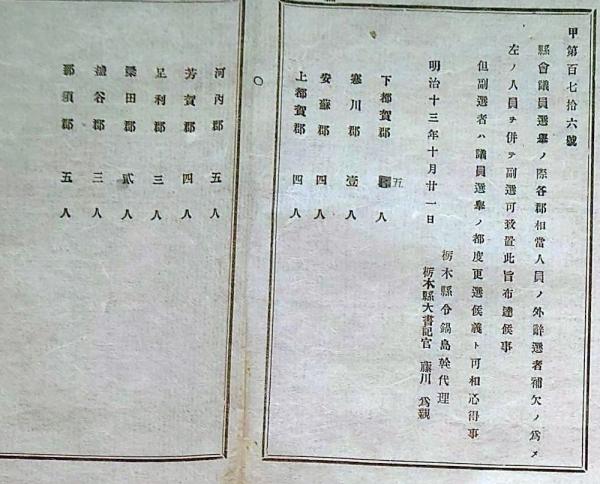 甲第百七拾六號
縣會議員選擧ノ際各郡相當人員ノ外辭選者補欠ノ爲メ
左ノ人員ヲ併テ副選可致置此旨布達候事
但副選者ハ議員選擧ノ都度更選候義ト可相心得事
明治十三年十月廿一日
栃木縣令鍋島幹代理
栃木縣大書記官 藤川爲親
下都賀郡 五人
寒川郡 壹人
安蘇郡 四人
上都賀郡 四人
河内郡 五人
芳賀郡 四人
足利郡 三人
梁田郡 貳人
鹽谷郡 三人
那須郡 五人